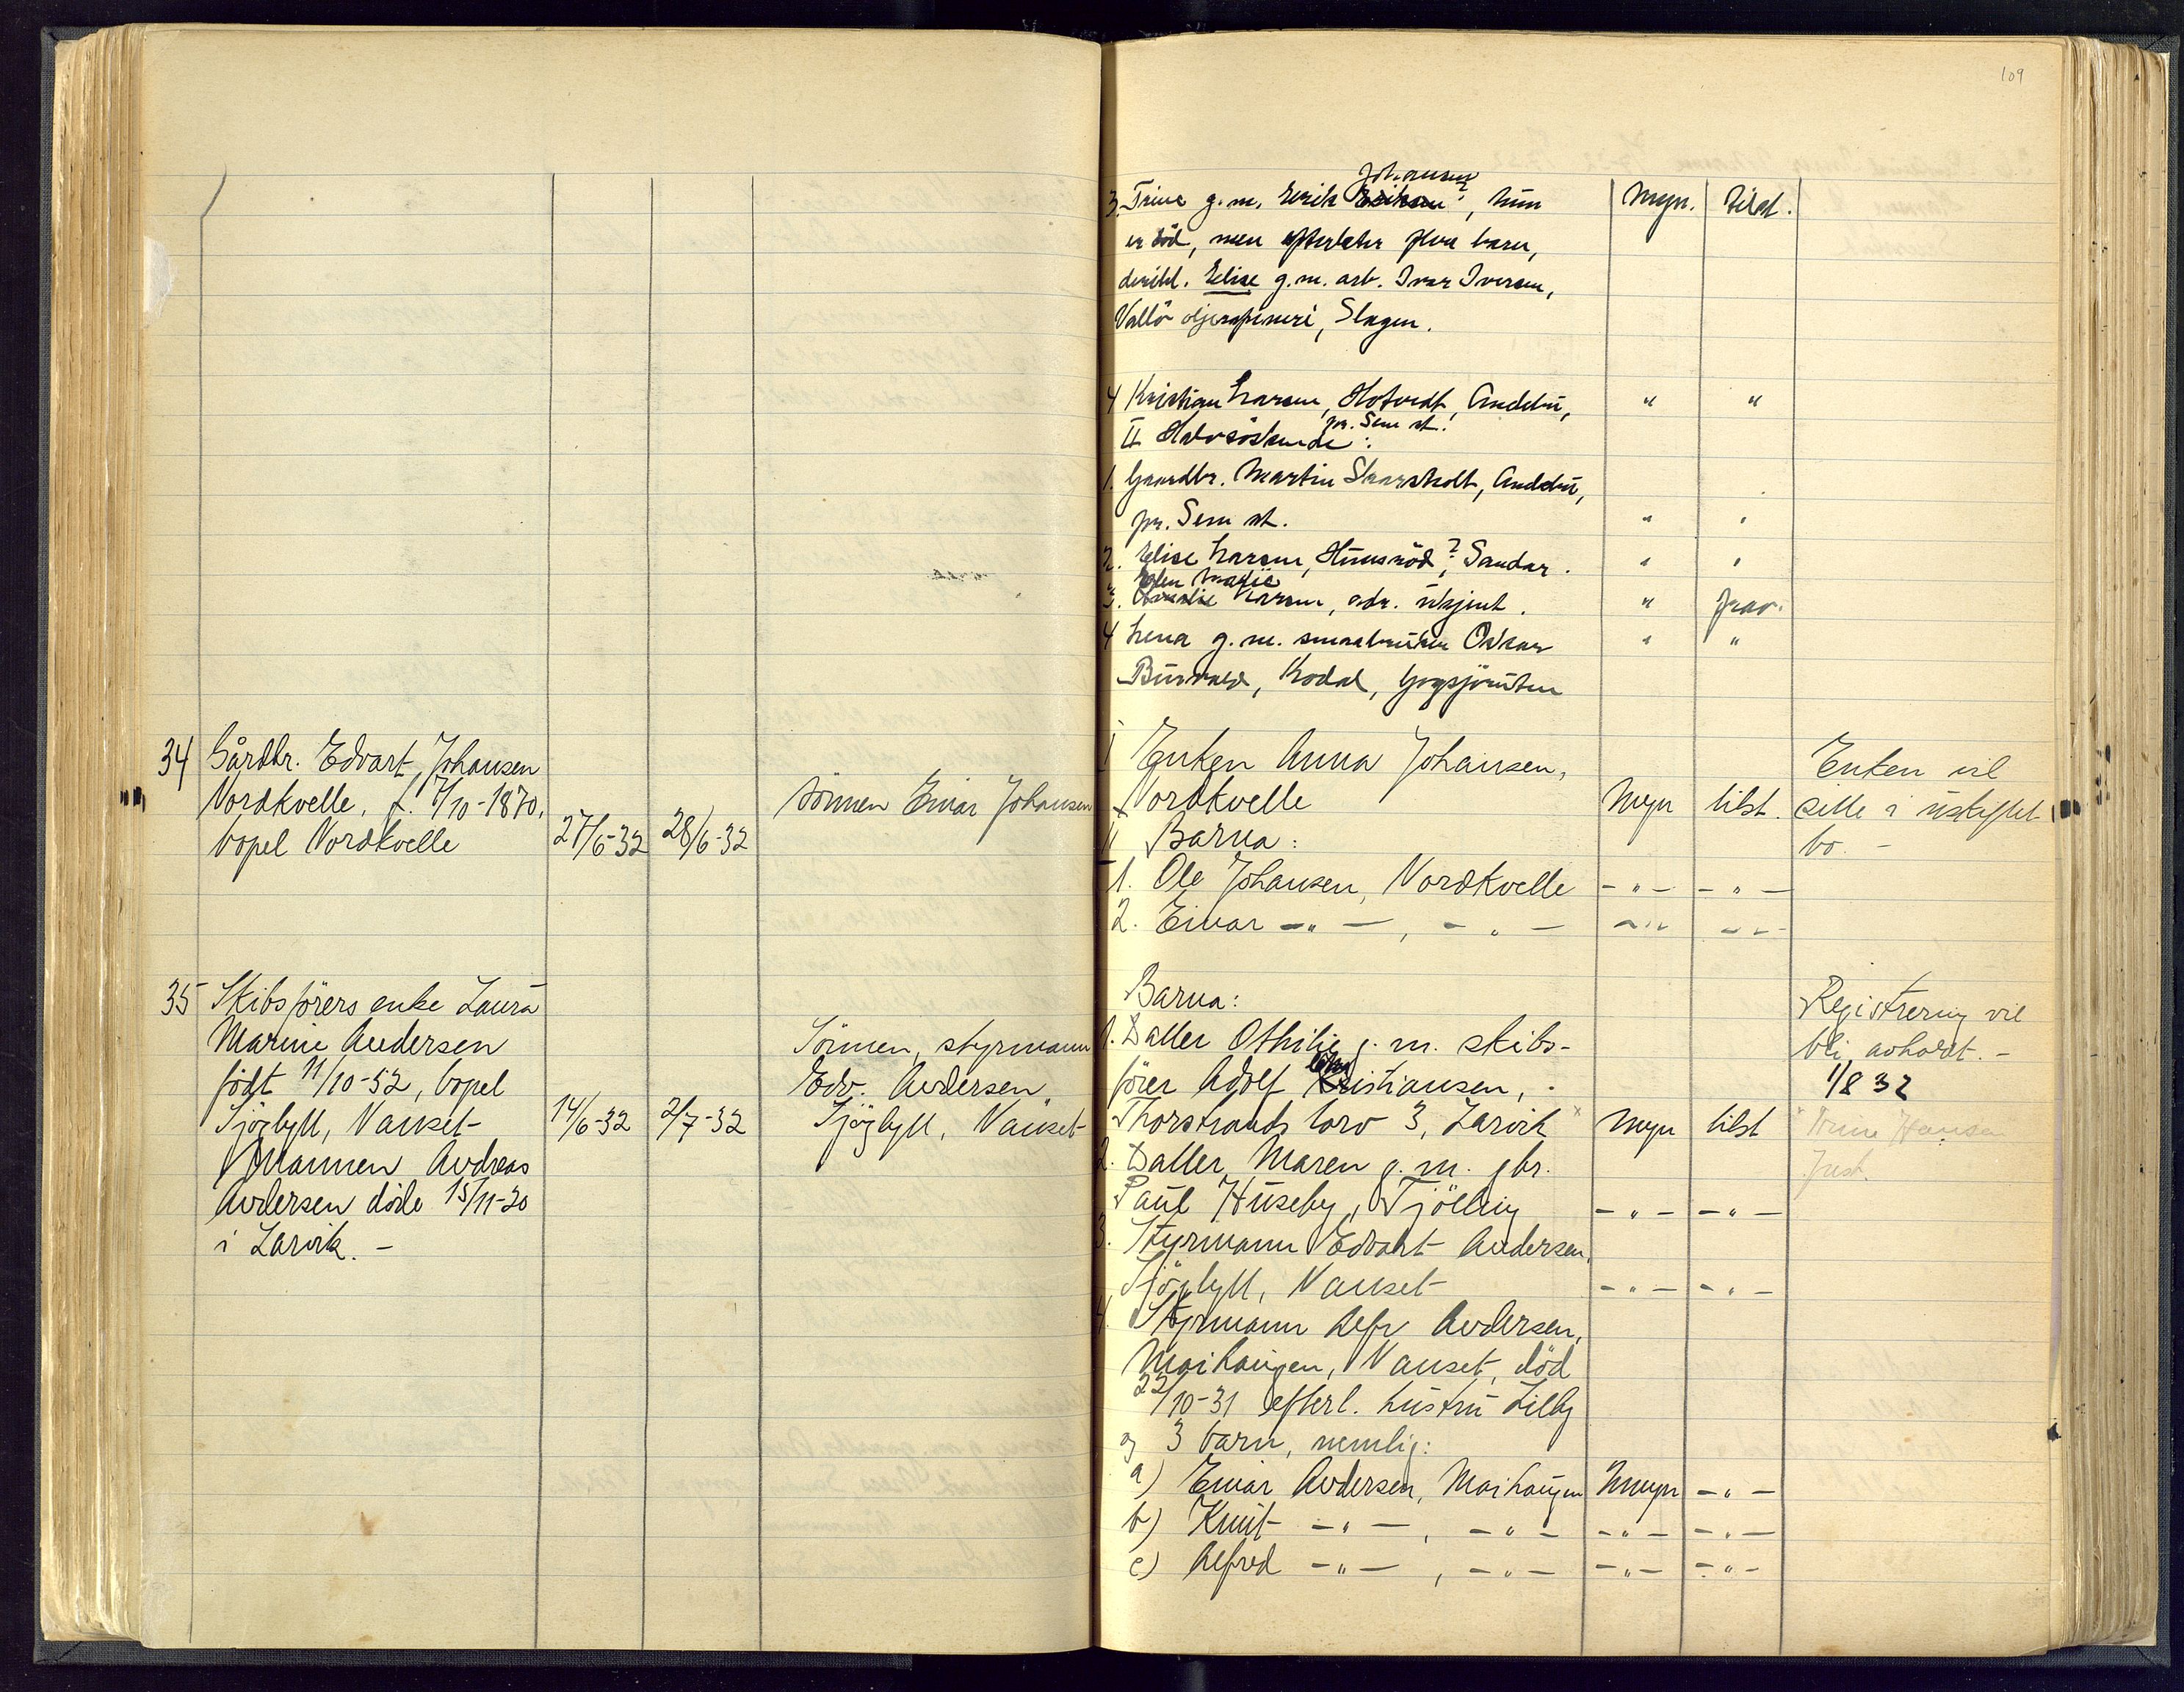 109
Johansen
3. Trine g.m. Erik Eriksen, hun
Myn. tilst.
er död, men efterlater flere barn,
deribl. Elise g.m. arb. Ivar Iversen,
Vallö oljeraffineri, Slagen.
4 Kristian Larsen, Hotvedt, Andebu,
" "
pr. Sem st.
II Halvsöskende:
1. Gaardbr. Martin Skarsholt, Andebu,
pr. Sem st.
" "
2. Elise Larsen, Hunsröd?, Sandar.
" "
Elen Marie
3. Larsen, adr. ukjent.
" frav.
4 Lena g.m. smaabruker Oskar
" "
Kodal,
34 Gårdbr. Edvart Johansen
Nordkvelle, f. 7/10-1870,
bopel Nordkvelle
27/6-32 28/6-32
Sönnen Einar Johansen
I Enken Anna Johansen,
Nordkvelle
Myn tilst.
Enken vil
sitte i uskiftet
bo. -
II Barna:
1. Ole Johansen, Nordkvelle -"- -"-
2. Einar -"-, -"- -"- -"-
35 Skibsförers enke Laura
Marine Andersen
födt 11/10-52, bopel
Sjögløtt, Nanset
14/6-32 2/7-32
Mannen Andreas
Andersen döde 15/11-20
i Larvik. -
Sönnen, styrmann
Edv. Andersen,
Sjögløtt, Nanset
Barna:
1. Datter Othilie g.m. skibs-
förer Adolf Kristiansen,
Thorstrands torv 3, Larvik x
Myn tilst
Registrering vil
bli avholdt. -
1/8 32
2. Datter Maren g.m. gbr.
Paul Huseby, Tjölling
-"- -"-
3. Styrmann Edvart Andersen,
Sjögløtt, Nanset
-"- -"-
4. Styrmann Alfr Andersen,
Maihaugen, Nanset, död
22/10-31 efterl. hustru Lilly
og 3 barn, nemlig:
a) Einar Andersen, Maihaugen Umyn -"-
b) Knut -"-, -"- -"- -"-
c) Alfred -"-, -"- -"- -"-